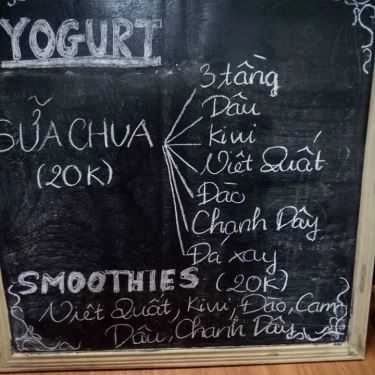 YOGURT
SỬA CHUA
(20K)
3 tầng
Dâu
Kiwi
Việt Quất
Đào
Chanh Dây
Đá xay
SMOOTHIES (20K)
Việt Quất, Kiwi, Đào, Cam,
Dâu, Chanh Dây